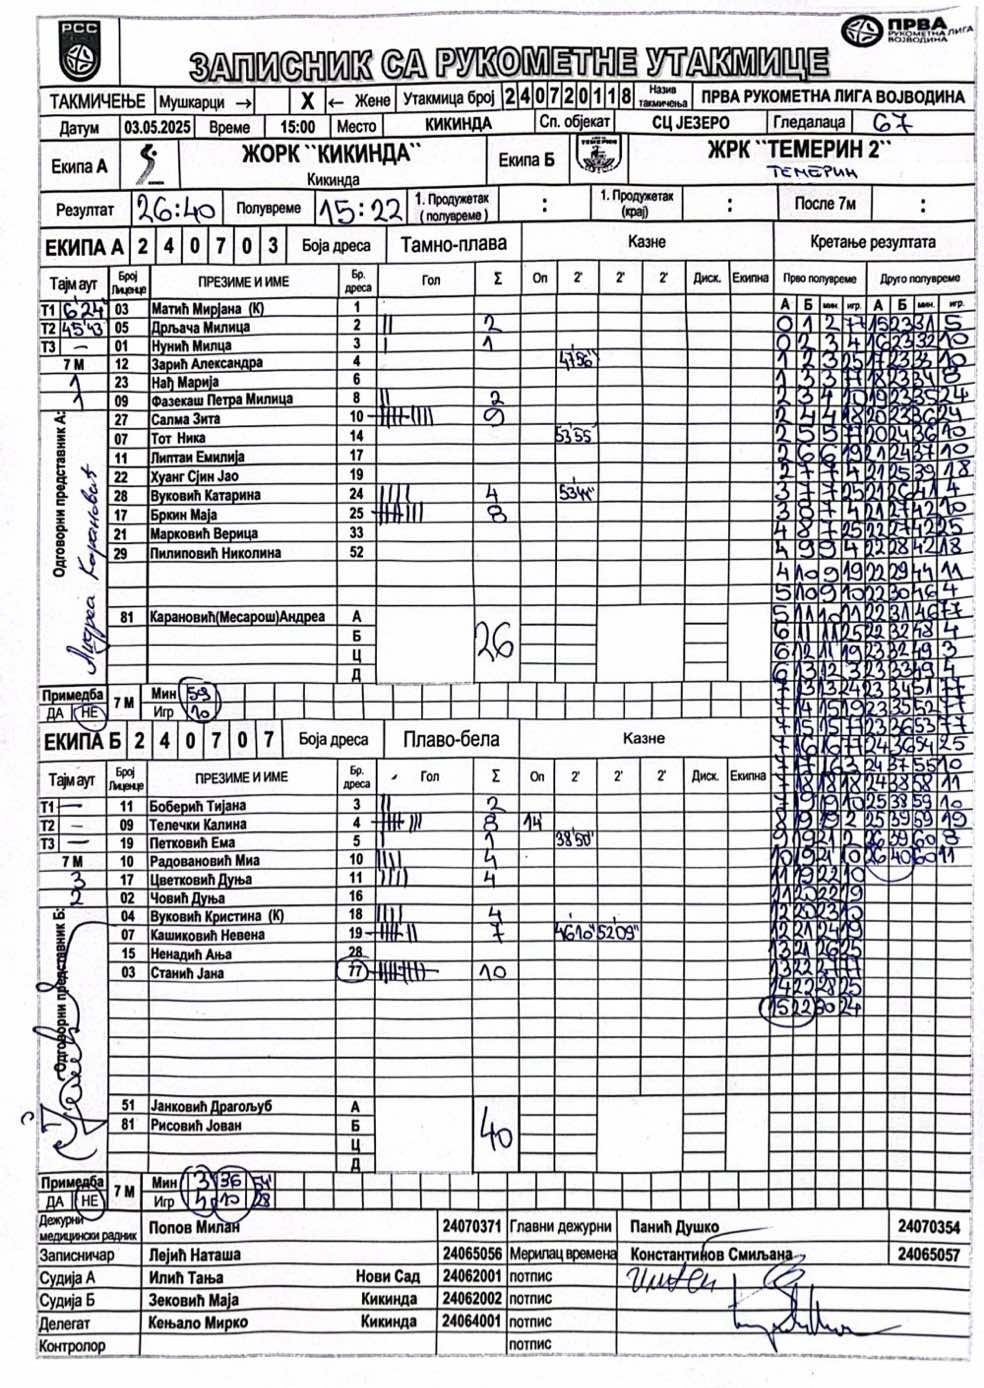 РСС
ПРВА
РУКОМЕТНА ЛИГА
ВОЈВОДИНА
ЗАПИСНИК СА РУКОМЕТНЕ УТАКМИЦЕ
ТАКМИЧЕЊЕ Мушкарци → X ← Жене Утакмица број 240720118 Назив такмичења ПРВА РУКОМЕТНА ЛИГА ВОЈВОДИНА
Датум 03.05.2025 Време 15:00 Место КИКИНДА Сп. објекат СЦ ЈЕЗЕРО Гледалаца 67
Екипа А ЖОРК "КИКИНДА" Кикинда Екипа Б ТЕМЕРИН ЖРК "ТЕМЕРИН 2" ТЕМЕРИН
Резултат 26:40 Полувреме 15:22 1. Продужетак (полувреме) : 1. Продужетак (крај) : После 7м :
ЕКИПА А 2 4 0 7 0 3 Боја дреса Тамно-плава Казне Кретање резултата
Тајм аут Број Лиценце ПРЕЗИМЕ И ИМЕ Бр. дреса Гол Σ Оп 2' 2' 2' Диск. Екипна Прво полувреме Друго полувреме
А Б мин. игр. А Б мин. игр.
Т1 6'24 03 Матић Мирјана (К) 1
Т2 45'43 05 Дрљача Милица 2 2
Т3 – 01 Нунић Милца 3 1
7 М 12 Зарић Александра 4 47'56"
1 23 Нађ Марија 6
1 09 Фазекаш Петра Милица 8 2
27 Салма Зита 10 9
07 Тот Ника 14 53'55"
11 Липтаи Емилија 17
22 Хуанг Сјин Јао 19
28 Вуковић Катарина 24 4 53'44"
17 Бркин Маја 25 8
21 Марковић Верица 33
29 Пилиповић Николина 52
81 Карановић(Месарош)Андреа А
Б
Ц
Д
26
Одговорни представник А: Андреа Карановић
Примедба ДА НЕ 7 М Мин 59
Игр 10
0 1 2 77 15 23 31 5
0 2 3 4 16 23 32 10
1 2 3 25 17 23 33 10
1 3 3 77 18 23 34 8
2 3 4 10 19 23 35 24
2 4 4 18 20 23 36 24
2 5 5 77 20 24 36 10
2 6 6 19 21 24 37 10
2 7 7 4 21 25 39 18
3 7 7 25 21 26 41 4
3 8 7 4 21 27 42 10
4 8 7 25 22 27 42 25
4 9 9 4 22 28 42 18
4 10 9 19 22 29 44 11
5 10 9 10 22 30 46 4
5 11 10 11 22 31 46 77
6 11 11 25 22 32 48 4
6 12 11 19 23 32 49 3
6 13 12 3 23 33 49 4
7 13 13 24 23 34 51 77
7 14 15 19 23 35 52 77
7 15 15 77 23 36 53 77
7 16 16 77 24 36 54 25
7 17 16 3 24 37 55 10
7 18 18 18 24 38 58 11
7 19 19 10 25 38 59 10
8 19 19 2 25 39 59 19
9 19 21 2 26 39 60 8
10 19 21 10 26 40 60 11
11 19 22 10
11 20 22 19
12 20 23 10
12 21 24 19
13 21 26 25
13 22 27 77
14 22 28 25
15 22 30 24
ЕКИПА Б 2 4 0 7 0 7 Боја дреса Плаво-бела Казне
Тајм аут Број Лиценце ПРЕЗИМЕ И ИМЕ Бр. дреса Гол Σ Оп 2' 2' 2' Диск. Екипна
Т1 – 11 Боберић Тијана 3 2
Т2 – 09 Телечки Калина 4 8 14'
Т3 – 19 Петковић Ема 5 1 38'50"
7 М 10 Радовановић Миа 10 4
3 17 Цветковић Дуња 11 4
2 02 Човић Дуња 16
04 Вуковић Кристина (К) 18 4
07 Кашиковић Невена 19 7 46'10" 52'09"
15 Ненадић Ања 28
03 Станић Јана 77 10
51 Јанковић Драгољуб А
81 Рисовић Јован Б
Ц
Д
40
Одговорни представник Б:
Примедба ДА НЕ 7 М Мин 3 36 54'
Игр 4 10 28
Дежурни медицински радник Попов Милан 24070371 Главни дежурни Панић Душко 24070354
Записничар Лејић Наташа 24065056 Мерилац времена Константинов Смиљана 24065057
Судија А Илић Тања Нови Сад 24062001 потпис
Судија Б Зековић Маја Кикинда 24062002 потпис
Делегат Кењало Мирко Кикинда 24064001 потпис
Контролор потпис